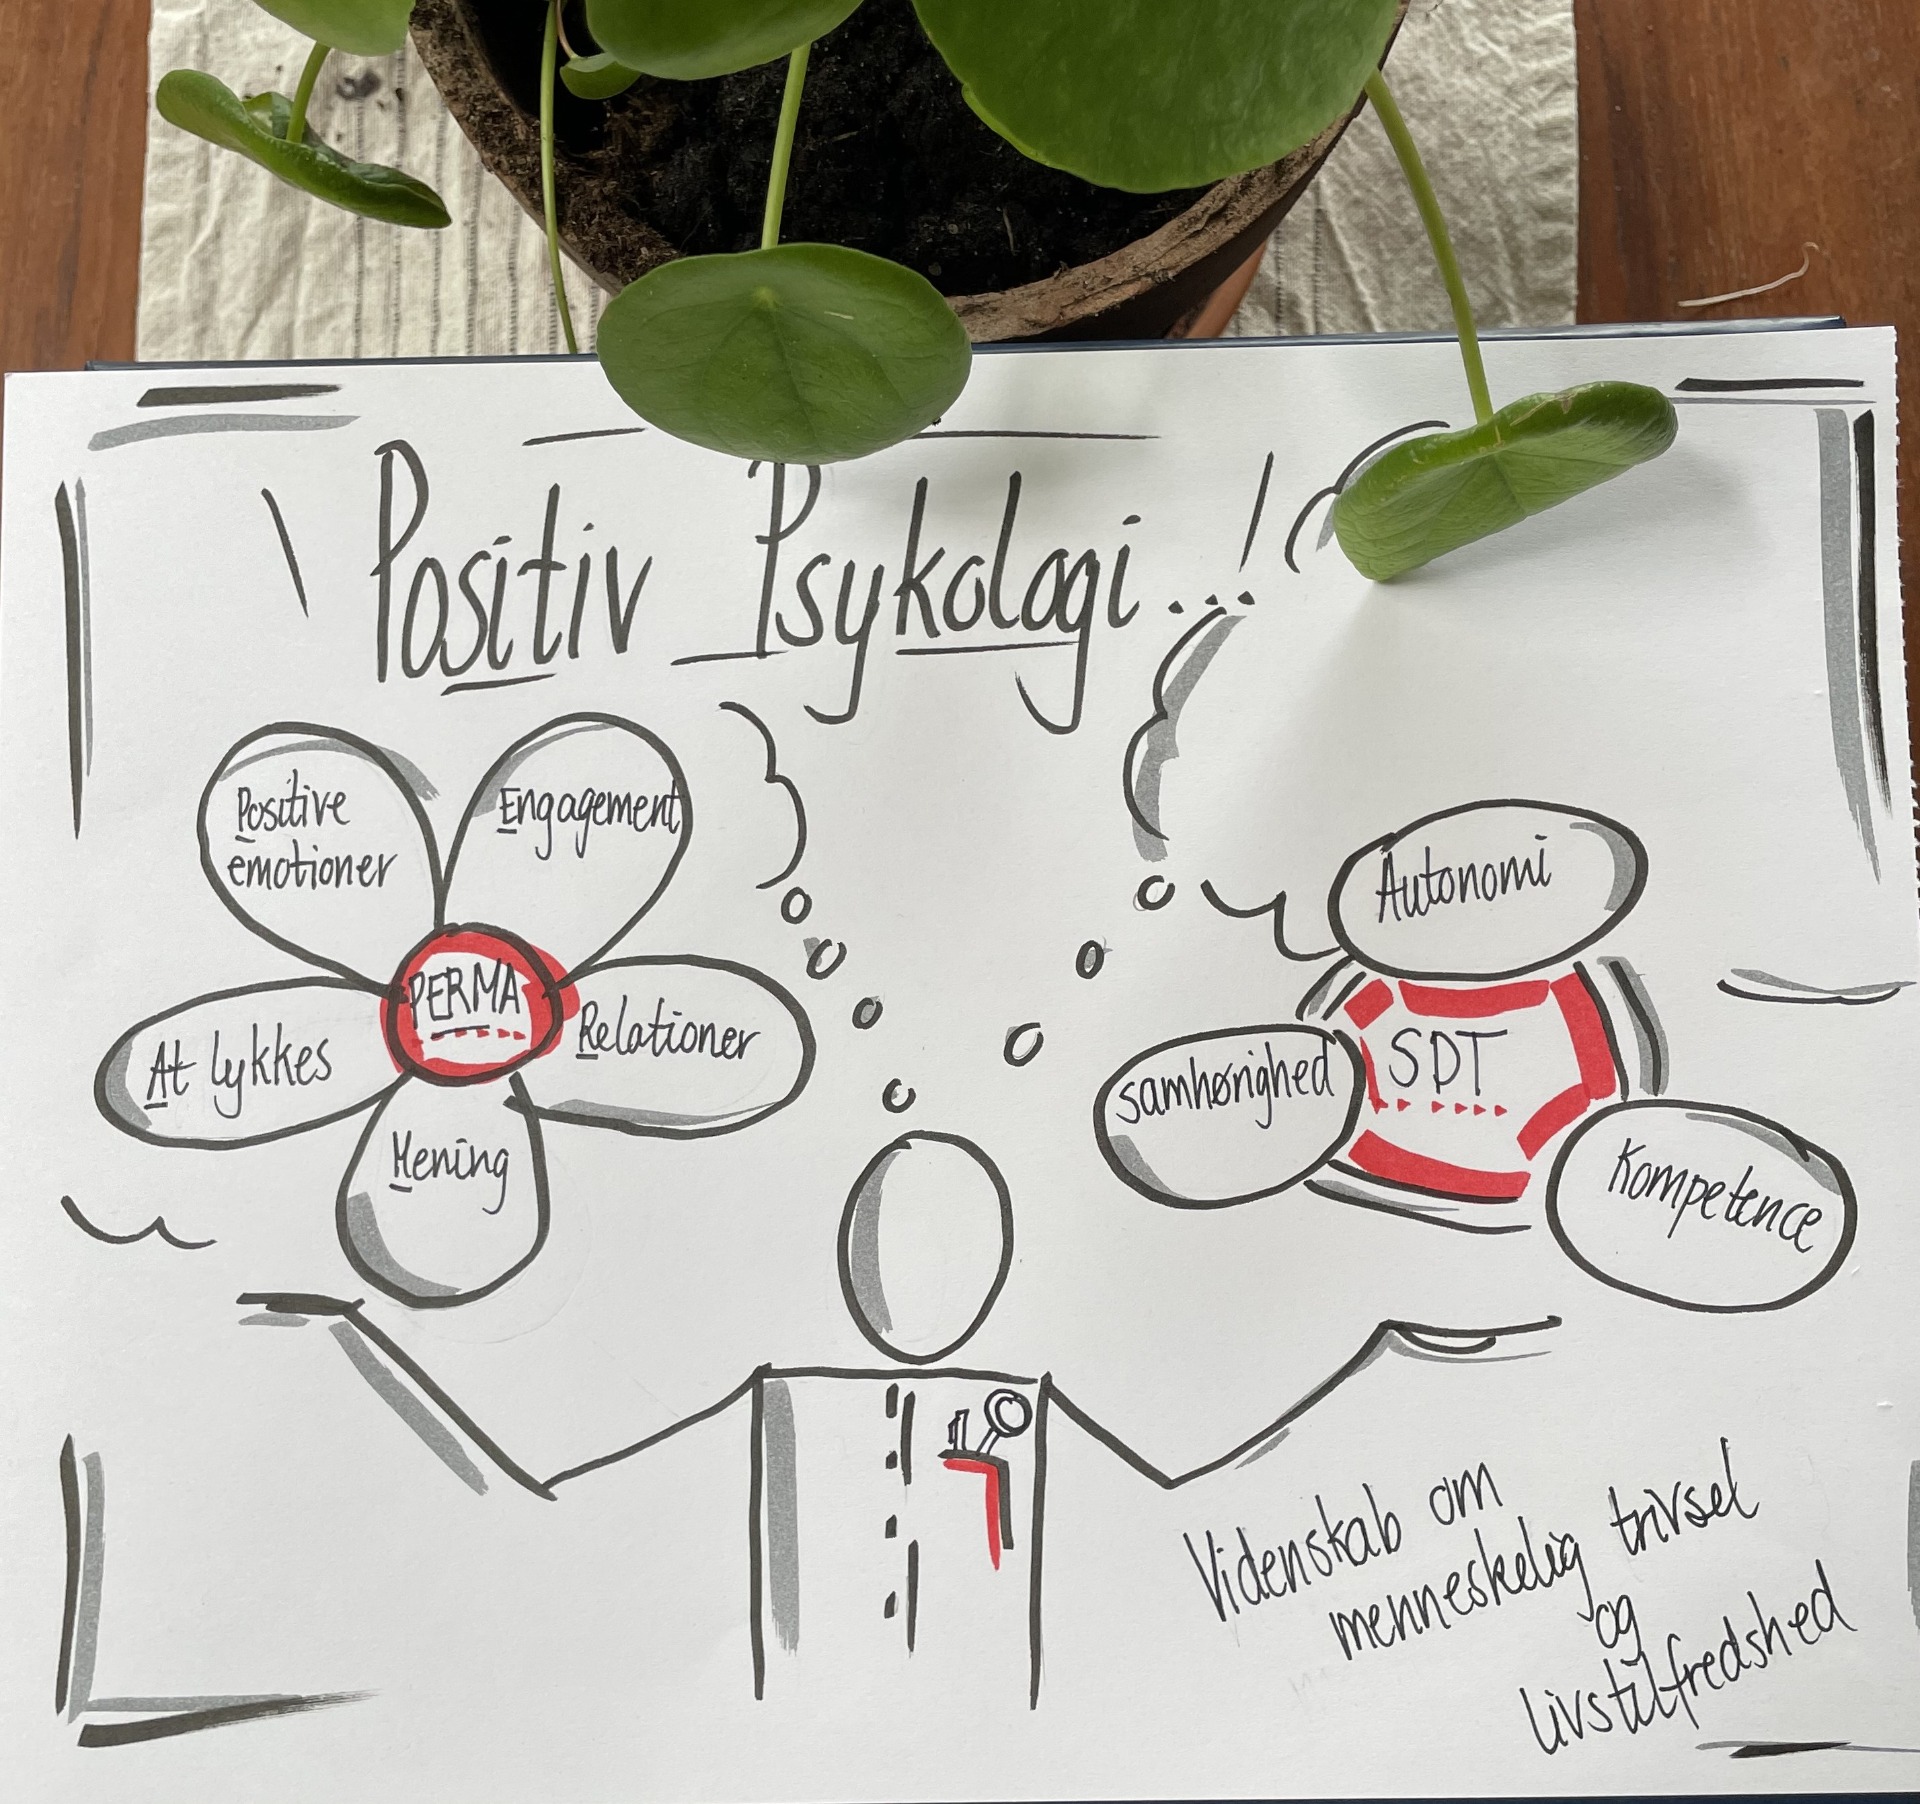 Positiv Psykologi...!
Positive
emotioner
Engagement
PERMA
At lykkes
Relationer
Mening
Autonomi
SDT
samhørighed
Kompetence
Videnskab om
menneskelig trivsel
og
livstilfredshed